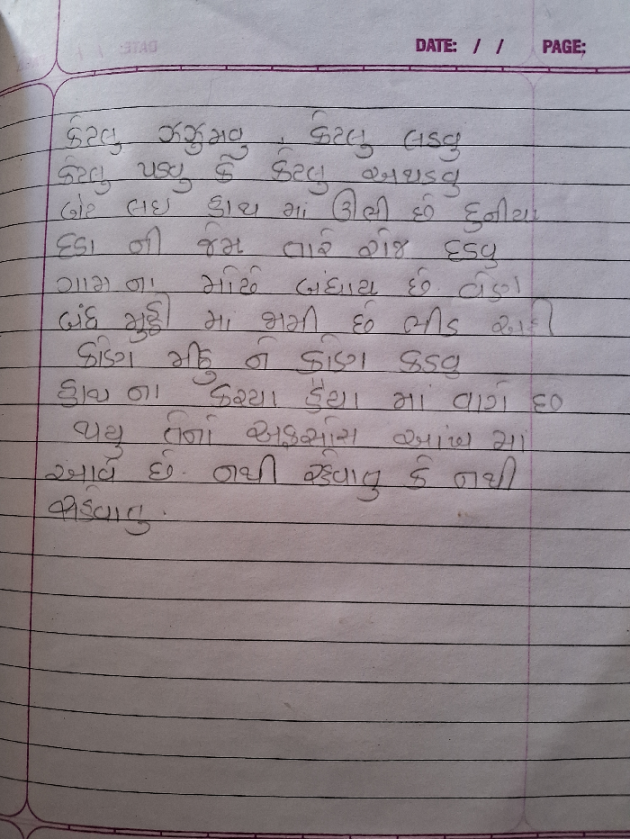 DATE: / / PAGE:
કેટલુ ઝઝુમવુ . કેટલુ લડવુ
કેટલુ પડવુ કે કેટલુ અથડવુ
બેટ લઇ હાથ માં ઊભી છે દુનીયા
દડા ની જેમ તારે રોજ દડવુ
ગામ ના મોઢે બંધાય છે
બંધ મુઠ્ઠી માં જામી છે ભીડ અહી
કોણ મીઠુ ને કોણ કડવુ
હાથ ના કર્યા હૈયા માં વાગે છે
થયુ તેનો અફસોસ આંખ માં
આવે છે. નથી રહેવાતુ કે નથી
સહેવાતુ.